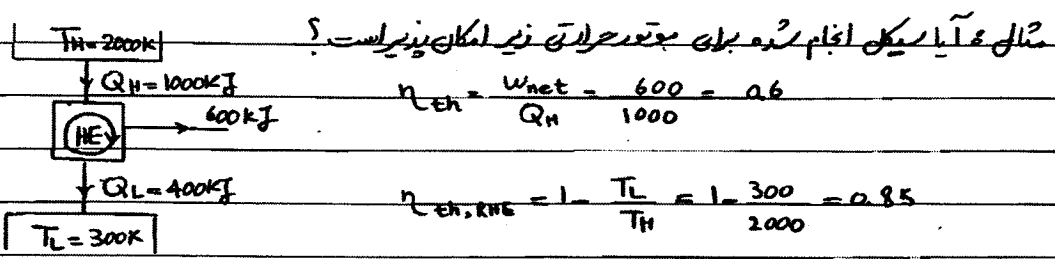 مثال: آیا سیکل انجام شده برای موتور حرارتی زیر امکان پذیر است؟
TH=2000K
QH=1000kJ
600kJ
HE
QL=400kJ
TL=300K
η th = Wnet / QH = 600 / 1000 = 0.6
η th, RHE = 1 - TL / TH = 1 - 300 / 2000 = 0.85